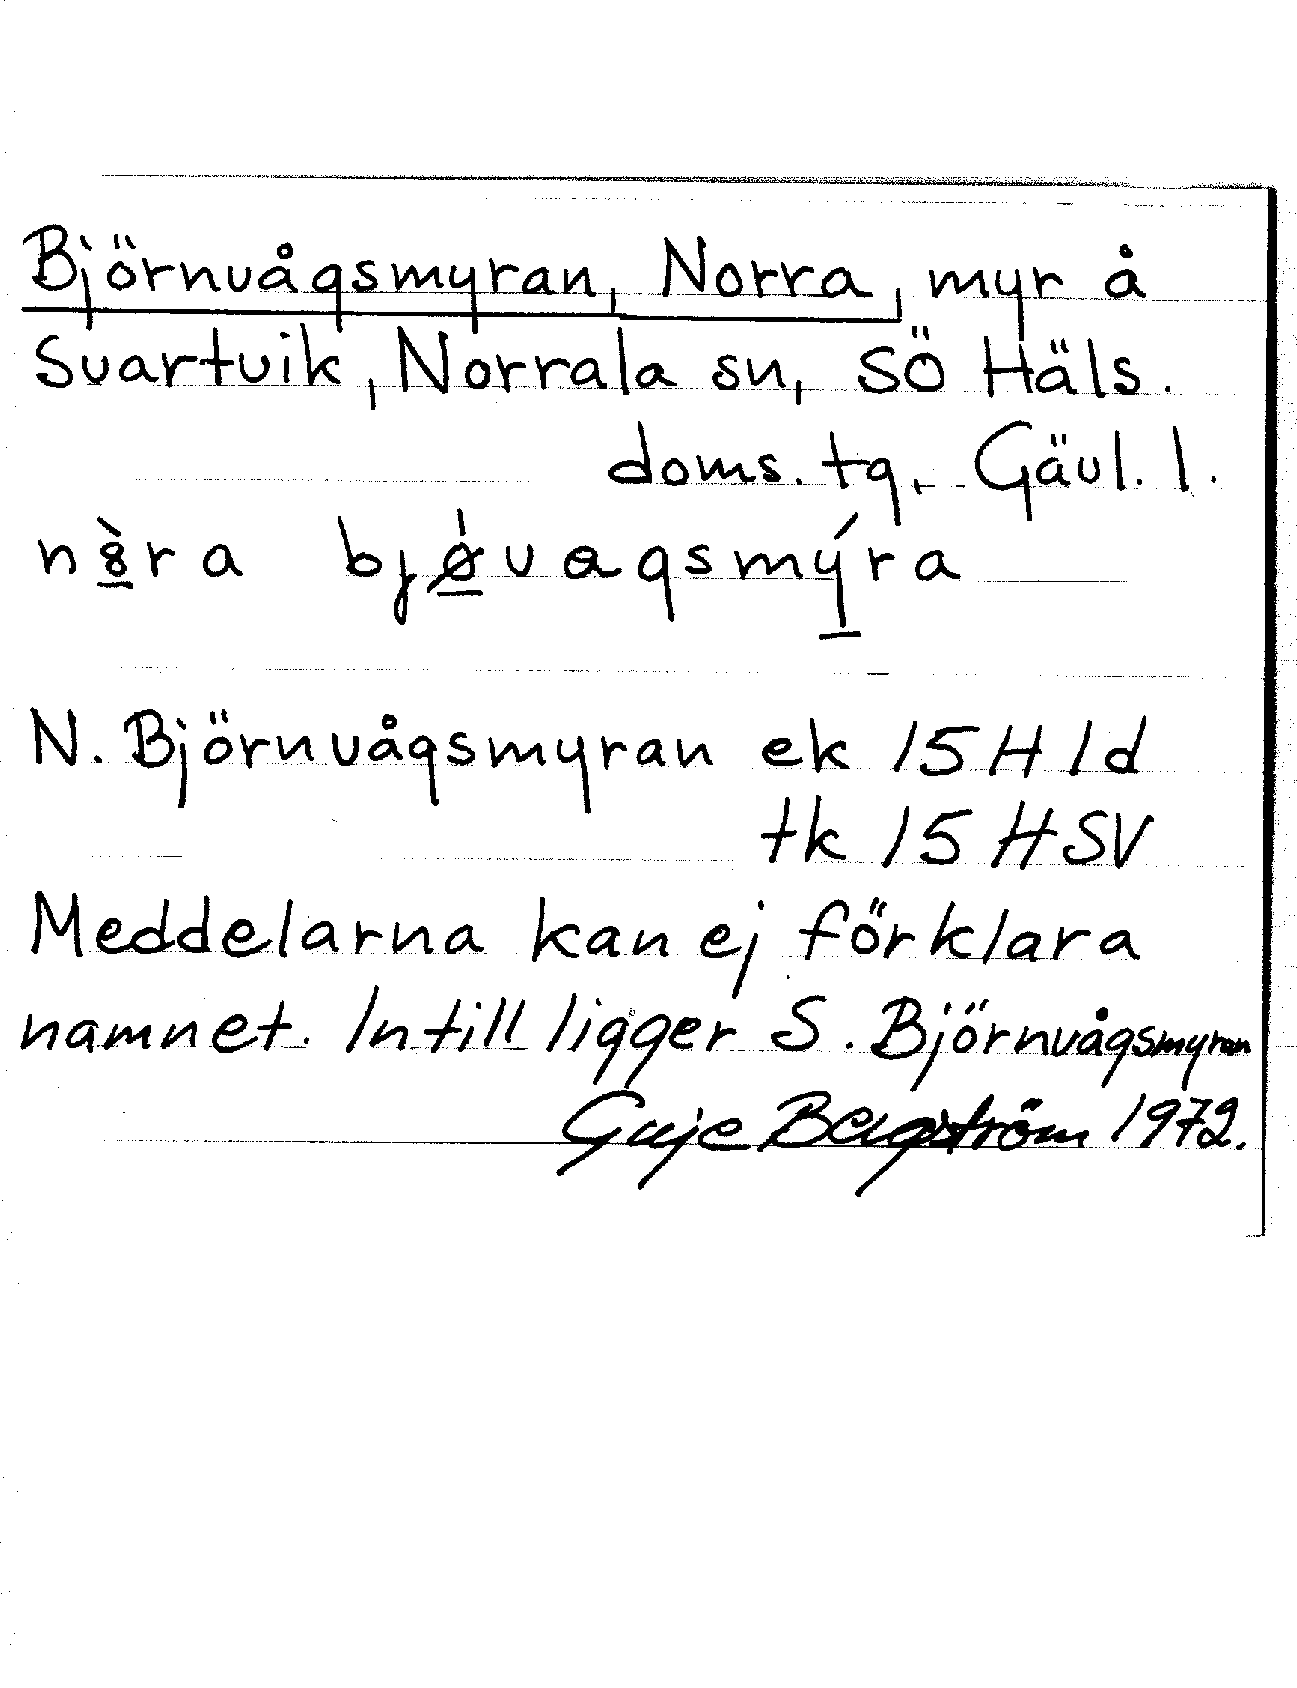 Björnvågsmyran, Norra, myr å
Svartvik, Norrala sn, SÖ Häls.
doms. tg, Gävl. l.
nȣ̱̀ra bjǿ̱vagsmý̱ra
N. Björnvågsmyran ek 15H 1d
tk 15 HSV
Meddelarna kan ej förklara
namnet. Intill ligger S. Björnvågsmyran
Guje Bergström 1972.